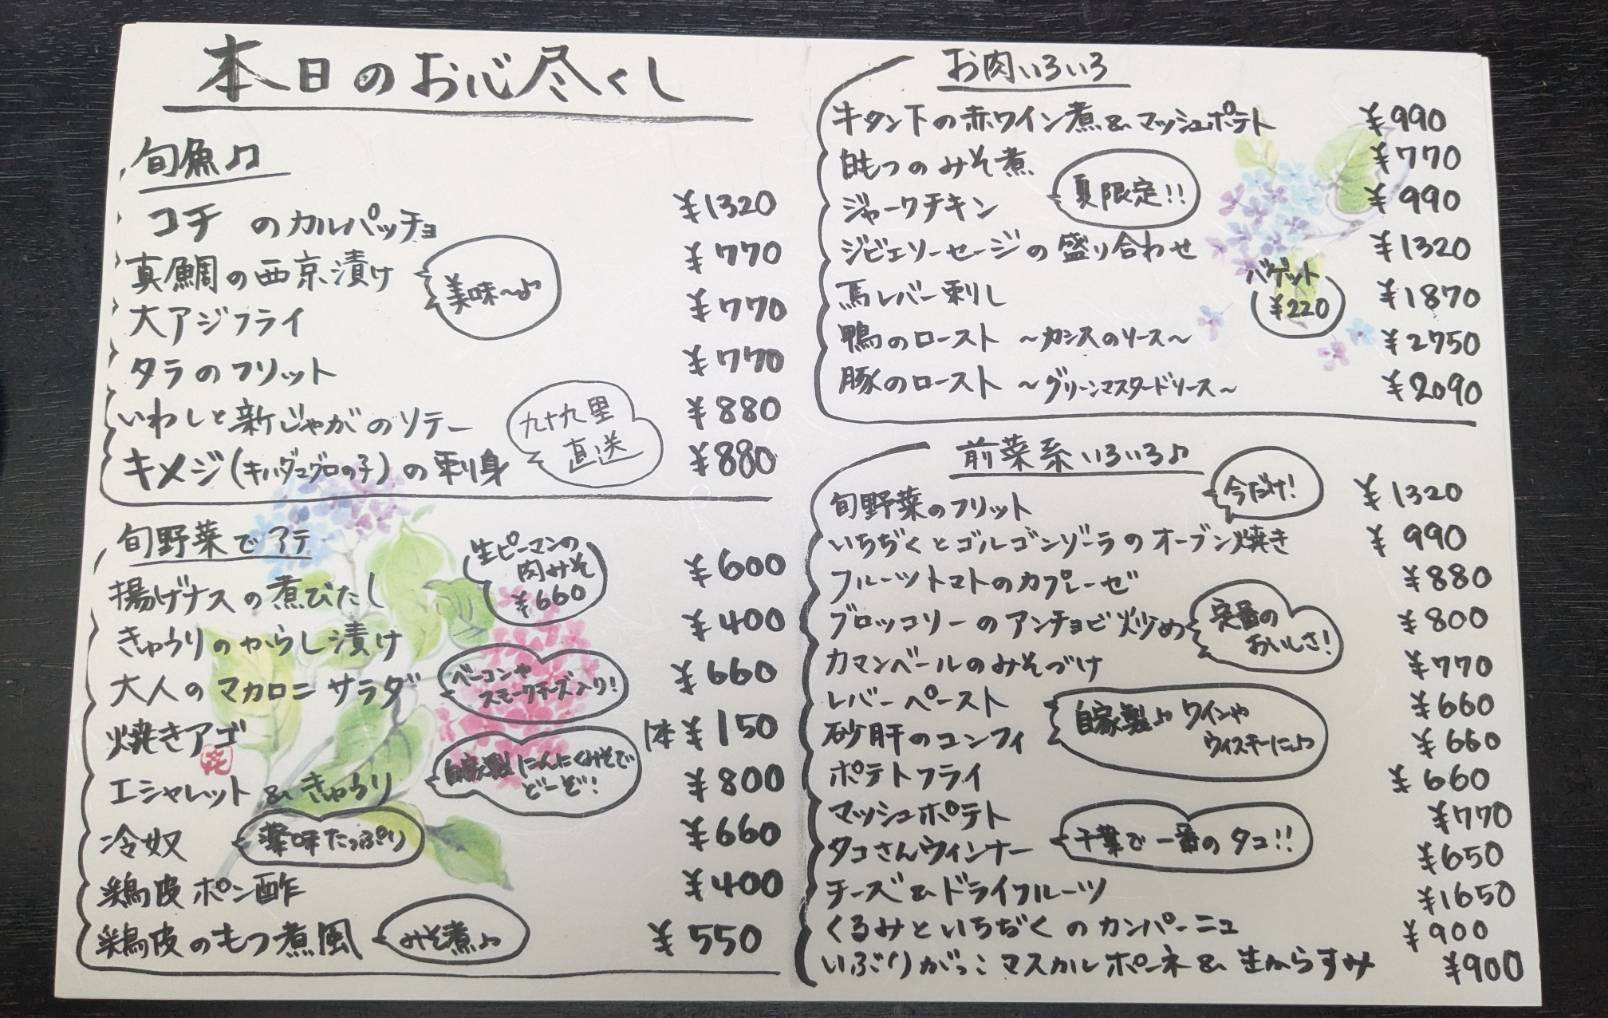 本日のお心尽くし
旬魚♫
コチ のカルパッチョ ¥1320
真鯛の西京漬け ¥770
美味〜♪
大アジフライ ¥770
タラのフリット ¥770
いわしと新じゃがのソテー ¥880
九十九里
直送
キメジ(キハダマグロの子)の刺身 ¥880
旬野菜でアテ
生ピーマンの
肉みそ
¥660
揚げナスの煮びたし ¥600
きゅうりのからし漬け ¥400
大人のマカロニサラダ ¥660
ベーコンや
スモークチーズ入り!
焼きアゴ 1本¥150
エシャレット&きゅうり ¥800
自家製にんにくみそで
どーぞ!
冷奴 ¥660
薬味たっぷり
鶏皮ポン酢 ¥400
鶏皮のもつ煮風 ¥550
みそ煮♫
お肉いろいろ
牛タン下の赤ワイン煮&マッシュポテト ¥990
白もつのみそ煮 ¥770
ジャークチキン ¥990
夏限定!!
ジビエソーセージの盛り合わせ ¥1320
バゲット
¥220
馬レバー刺し ¥1870
鴨のロースト 〜カシスのソース〜 ¥2750
豚のロースト 〜グリーンマスタードソース〜 ¥2090
前菜系いろいろ♪
旬野菜のフリット ¥1320
今だけ!
いちぢくとゴルゴンゾーラのオーブン焼き ¥990
フルーツトマトのカプレーゼ ¥880
ブロッコリーのアンチョビ炒め ¥800
定番の
おいしさ!
カマンベールのみそづけ ¥770
レバーペースト ¥660
自家製♫ワインや
ウィスキーに♪
砂肝のコンフィ ¥660
ポテトフライ ¥660
マッシュポテト ¥770
タコさんウィンナー ¥650
千葉で一番のタコ!!
チーズ&ドライフルーツ ¥1650
くるみといちぢくのカンパーニュ ¥900
いぶりがっこマスカルポーネ&生からすみ ¥900